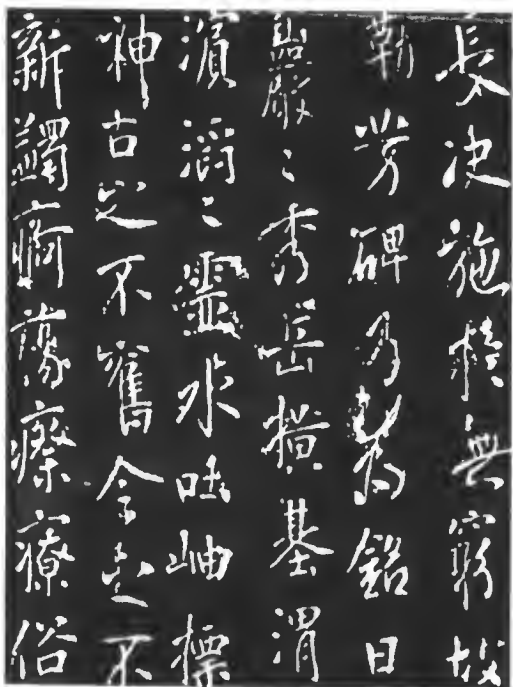 長决施於無窮故
勒芳碑乃為銘曰
巖々秀岳橫基渭
濱滔々靈水吐岫標
神古之不舊今之不
新蠲痾蕩瘵療俗